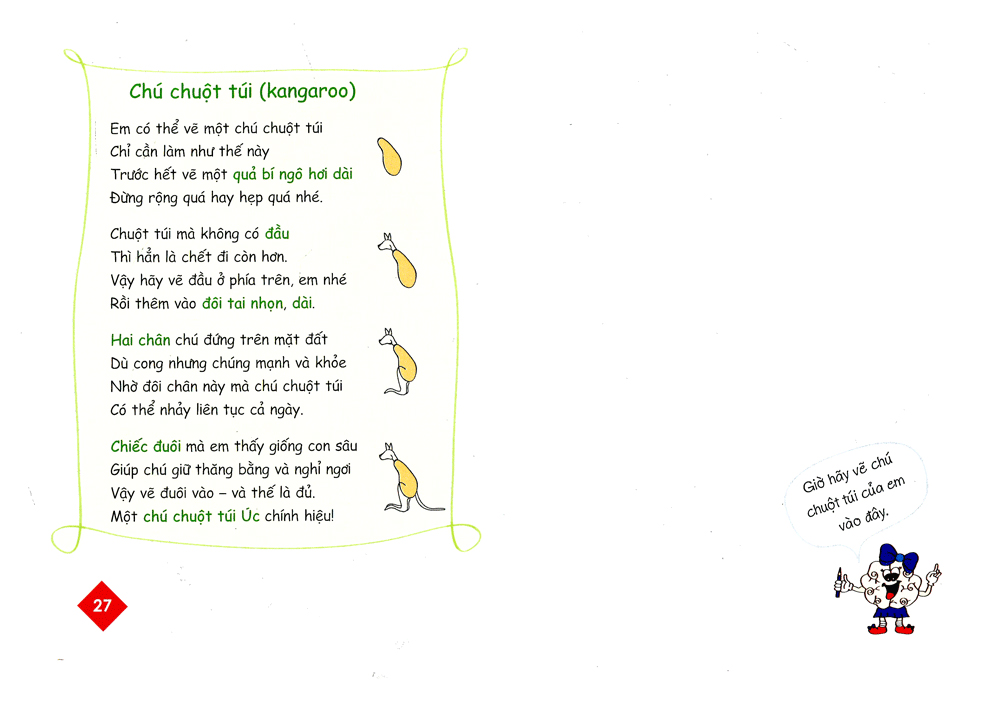 Chú chuột túi (kangaroo)
Em có thể vẽ một chú chuột túi
Chỉ cần làm như thế này
Trước hết vẽ một quả bí ngô hơi dài
Đừng rộng quá hay hẹp quá nhé.
Chuột túi mà không có đầu
Thì hẳn là chết đi còn hơn.
Vậy hãy vẽ đầu ở phía trên, em nhé
Rồi thêm vào đôi tai nhọn, dài.
Hai chân chú đứng trên mặt đất
Dù cong nhưng chúng mạnh và khỏe
Nhờ đôi chân này mà chú chuột túi
Có thể nhảy liên tục cả ngày.
Chiếc đuôi mà em thấy giống con sâu
Giúp chú giữ thăng bằng và nghỉ ngơi
Vậy vẽ đuôi vào – và thế là đủ.
Một chú chuột túi Úc chính hiệu!
27
Giờ hãy vẽ chú
chuột túi của em
vào đây.